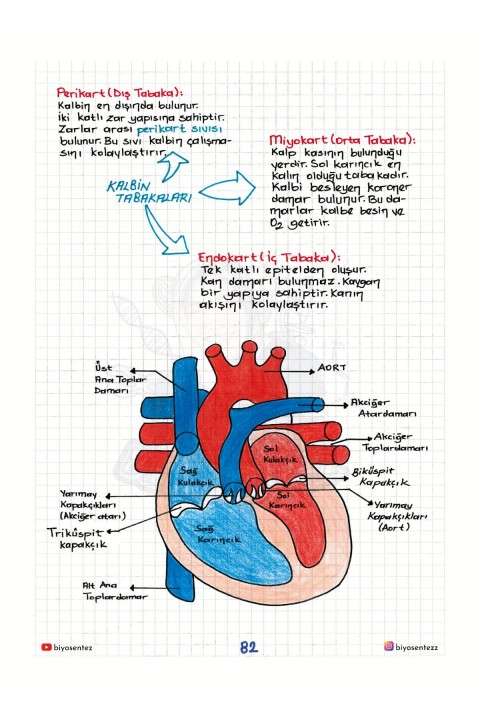 Perikart (Dış Tabaka):
Kalbin en dışında bulunur.
İki katlı zar yapısına sahiptir.
Zarlar arası perikart sıvısı
bulunur. Bu sıvı kalbin çalışma-
sını kolaylaştırır.
KALBİN
TABAKALARI
Miyokart (Orta Tabaka):
Kalp kasının bulunduğu
yerdir. Sol karıncık en
kalın olduğu tabakadır.
Kalbi besleyen koroner
damar bulunur. Bu da-
marlar kalbe besin ve
O₂ getirir.
Endokart (İç Tabaka):
Tek katlı epitelden oluşur.
Kan damarı bulunmaz. Kaygan
bir yapıya sahiptir. Kanın
akışını kolaylaştırır.
Üst
Ana Toplar
Damarı
AORT
Akciğer
Atardamarı
Akciğer
Toplardamarı
Sağ
Kulakçık
Sol
Kulakçık
Biküspit
Kapakçık
Yarımay
Kapakçıkları
(Akciğer atarı)
Sol
Karıncık
Yarımay
Kapakçıkları
(Aort)
Triküspit
kapakçık
Sağ
Karıncık
Alt Ana
Toplardamar
biyosentez
82
biyosentezz